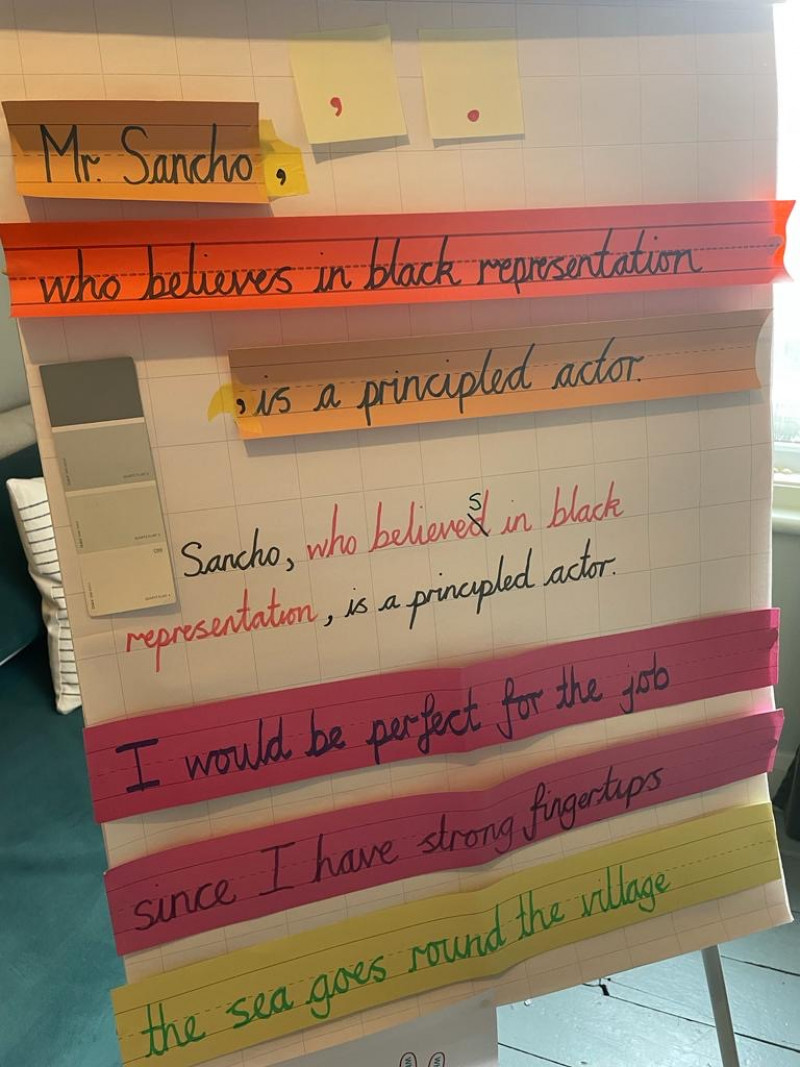 , .
Mr. Sancho,
who believes in black representation
, is a principled actor.
s
Sancho, who believed in black
representation, is a principled actor.
I would be perfect for the job
since I have strong fingertips
the sea goes round the village